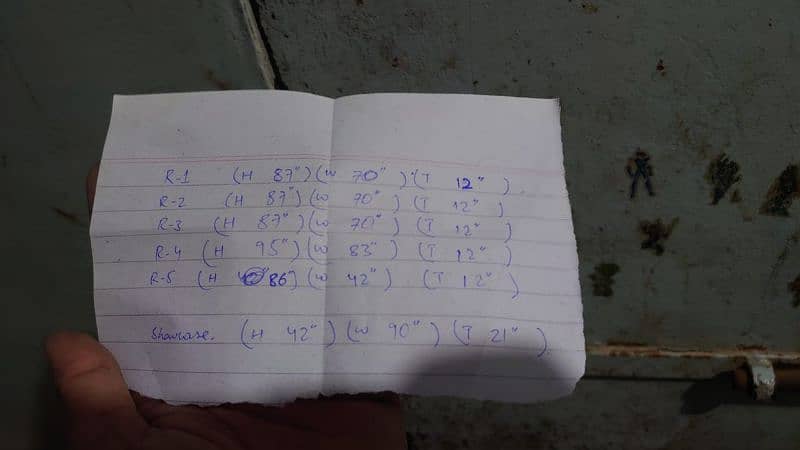 R-1 (H 87") (W 70") (T 12")
R-2 (H 87") (W 70") (T 12")
R-3 (H 87") (W 70") (T 12")
R-4 (H 95") (W 83") (T 12")
R-5 (H 86") (W 42") (T 12")
Showcase. (H 42") (W 90") (T 21")